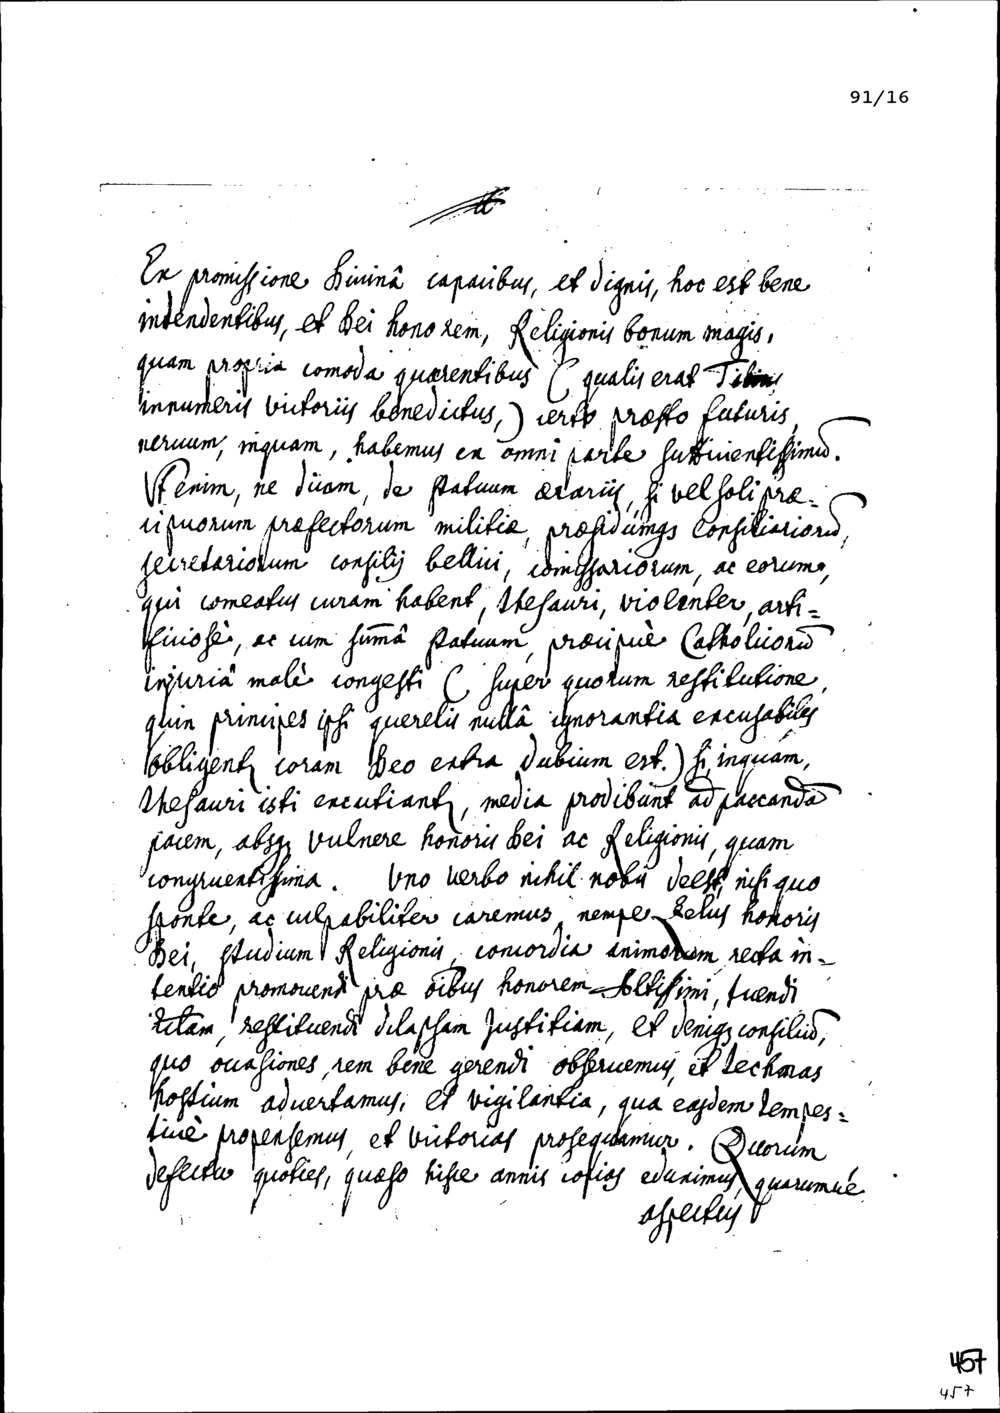 91/16
Ex promissione Divinâ capacibus, et dignis, hoc est bene
intendentibus, et Dei honorem, Religionis bonum magis,
quam propria comoda quærentibus ( qualis erat
innumeris victoriis benedictus, ) certo præsto futuris,
neruum, inquam, habemus ex omni parte sufficientissimū.
Vt enim, ne dicam, de statuum ærariis, si vel soli præ=
cipuorum præfectorum militiæ, præsidiumqs Consiliariorū,
secretariorum consilij bellici, comissariorum, ac eorum,
qui comeatus curam habent, thesauri, violenter, arti=
ficiosè, ac cum sum̄â statuum, præcipuè Catholicorū
injuriâ malè congesti ( super quorum restitutione,
quin principes ipsi querelis nullâ ignorantia excusabiles
obligentꝫ coram Deo extra dubium est. ) si, inquam,
thesauri isti excutiantꝫ, media prodibunt ad paccandā
pacem, absqꝫ vulnere honoris Dei ac Religionis, quam
congruentissima. Vno verbo nihil nobis deest, nisi quo
sponte, ac culpabiliter caremus, nempe Zelus honoris
Dei, studium Religionis, concordia animorum recta in=
tentio promovendi præ oībus honorem Altissimi, tuendi
restituendi dilapsam Justitiam, et deniqs consiliū,
quo occasiones, rem bene gerendi observemus, et technas
hostium advertamus, et vigilantia, qua easdem tempes=
tivè propensemus, et victorias prosequamur. Quorum
defectu quoties, quæso hisce annis copias eduximus, quarumvè
aspectus
457
457